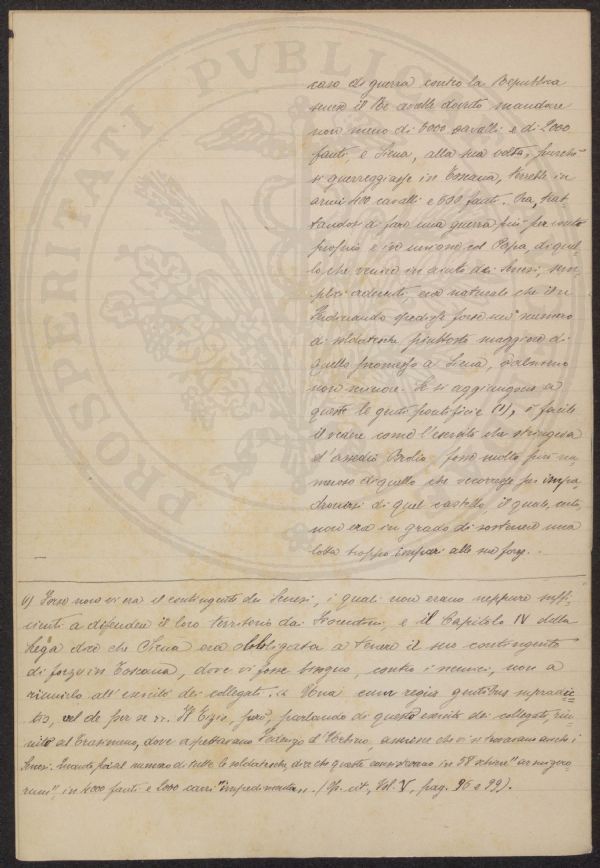 PROSPERITATI PVBLICAE
caso di guerra contro la Repubblica
senese il Re avesse dovuto mandare
non meno di 6000 cavalli e di 2000
fanti, e Siena, alla sua volta, purchè
si guerreggiasse in Toscana, terrebbe in
armi 400 cavalli e 600 fanti. Ora, trat-
tandosi di fare una guerra più per conto
proprio e in unione col Papa, di quel-
lo che venire in aiuto dei Senesi, sem-
plici aderenti, era naturale che il re
Ferdinando spedisse forse un numero
di soldatesche piuttosto maggiore di
quello promesso a Siena, o almeno
non minore. Se si aggiungono a
queste le genti pontificie (1), è facile
il vedere come l'esercito che stringeva
d'assedio Brolio fosse molto più nu-
meroso di quello che occorresse per impa-
dronirsi di quel castello, il quale, certo,
non era in grado di sostenere una
lotta troppo impari alle sue forze.
(1) Forse non vi era il contingente dei Senesi, i quali non erano neppure suffi-
cienti a difendere il loro territorio dai Fiorentini, e il Capitolo IV della
Lega dice che Siena era obbligata a tenere il suo contingente
di forze in Toscana, dove vi fosse bisogno, contro i nemici, non a
riunirlo all'esercito dei collegati. « Una cum regiis gentibus supradic-
tis, vel de per se ». Il Tizio, però, parlando di questo esercito dei collegati, riu-
nito al dove aspettavano Federigo d'Urbino, asserisce che vi si trovavano anche i
Senesi. Quanto poi al numero di tutte le soldatesche, dice che queste consistevano in 58 " armigero-
rum", in 4000 fanti e 2000 carri "impedimentorum". (Op. cit., Vol. V, pag. 96 e 99).